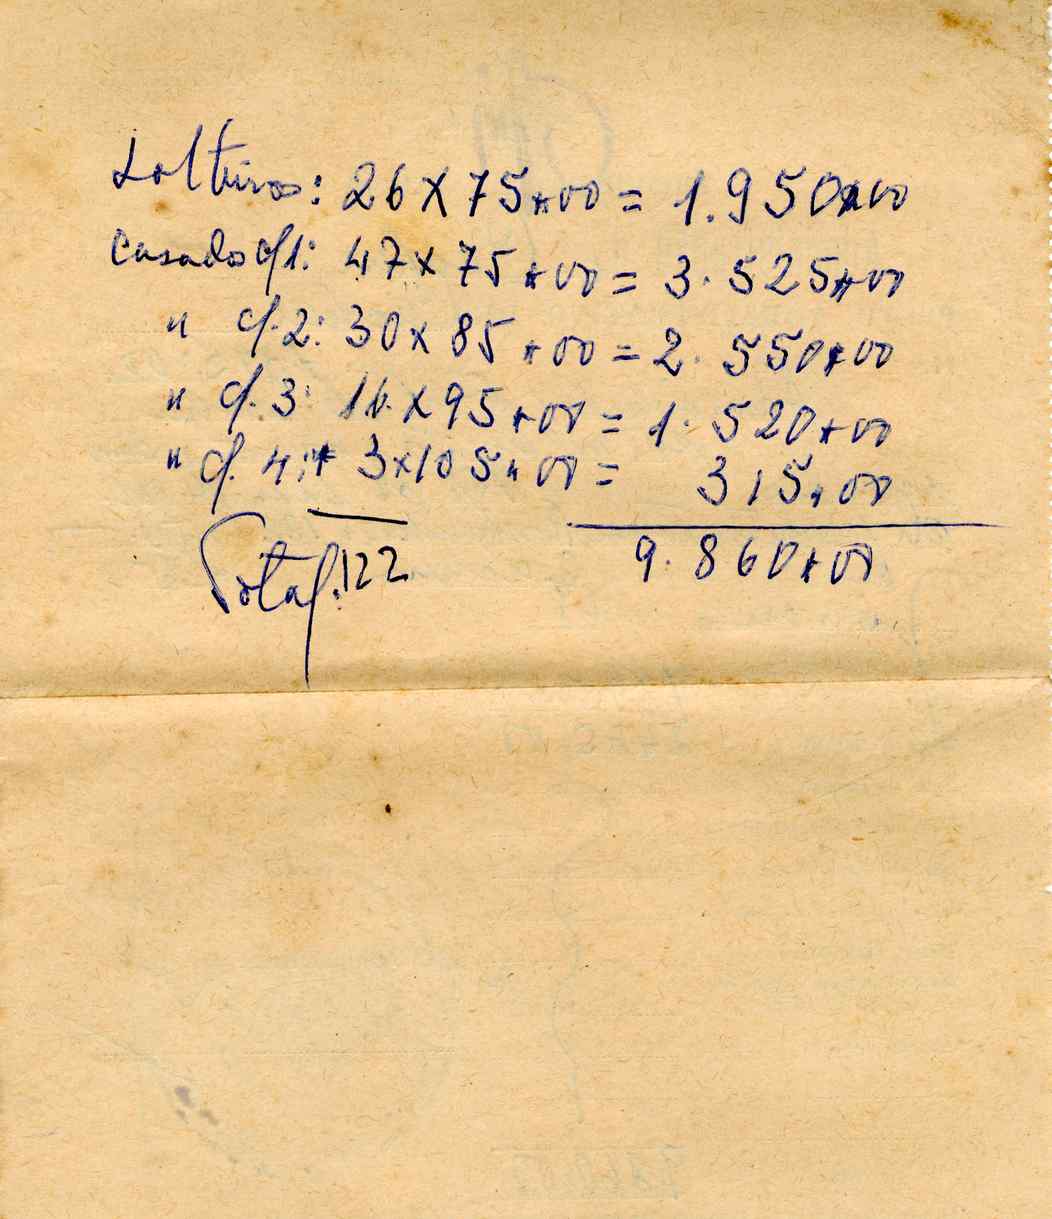 Solteiros: 26 X 75,00 = 1.950,00
Casados c/1: 47 x 75,00 = 3.525,00
" c/. 2: 30 x 85,00 = 2.550,00
" c/. 3: 16 x 95,00 = 1.520,00
" c/. 4: 3 x 105,00 = 315,00
Total: 122 9.860,00